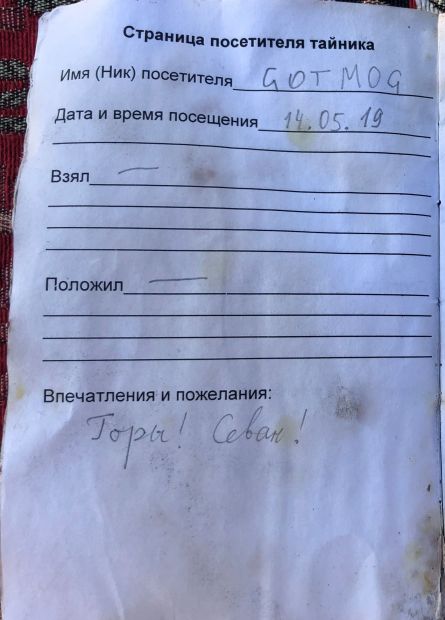 Страница посетителя тайника
Имя (Ник) посетителя GOTMOG
Дата и время посещения 14.05.19
Взял —
Положил —
Впечатления и пожелания:
Горы! Севан!